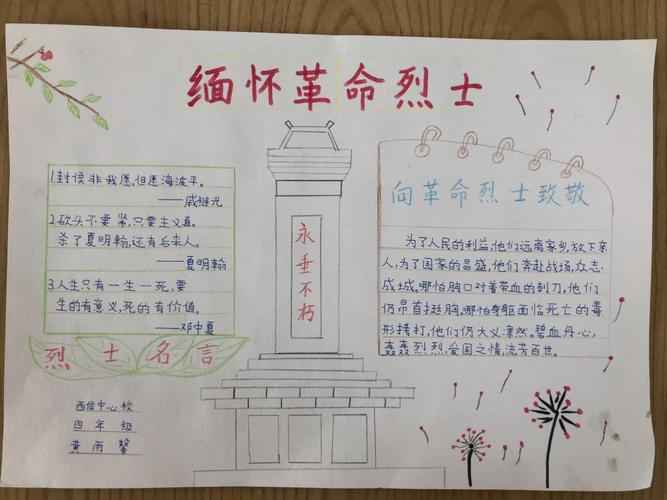 缅怀革命烈士
1.封侯非我愿,但愿海波平。
——戚继光
2.砍头不要紧,只要主义真。
杀了夏明翰,还有后来人。
——夏明翰
3.人生只有一生一死,要
生的有意义,死的有价值。
——邓中夏
烈士名言
西佳中心校
四年级
黄雨馨
永垂不朽
向革命烈士致敬
为了人民的利益,他们远离家乡,放下亲
人,为了国家的昌盛,他们奔赴战场,众志
成城,哪怕胸口对着带血的刺刀,他们
仍昂首挺胸,哪怕身躯面临死亡的毒
形拷打,他们仍大义凛然。碧血丹心,
轰轰烈烈,爱国之情,流芳百世。